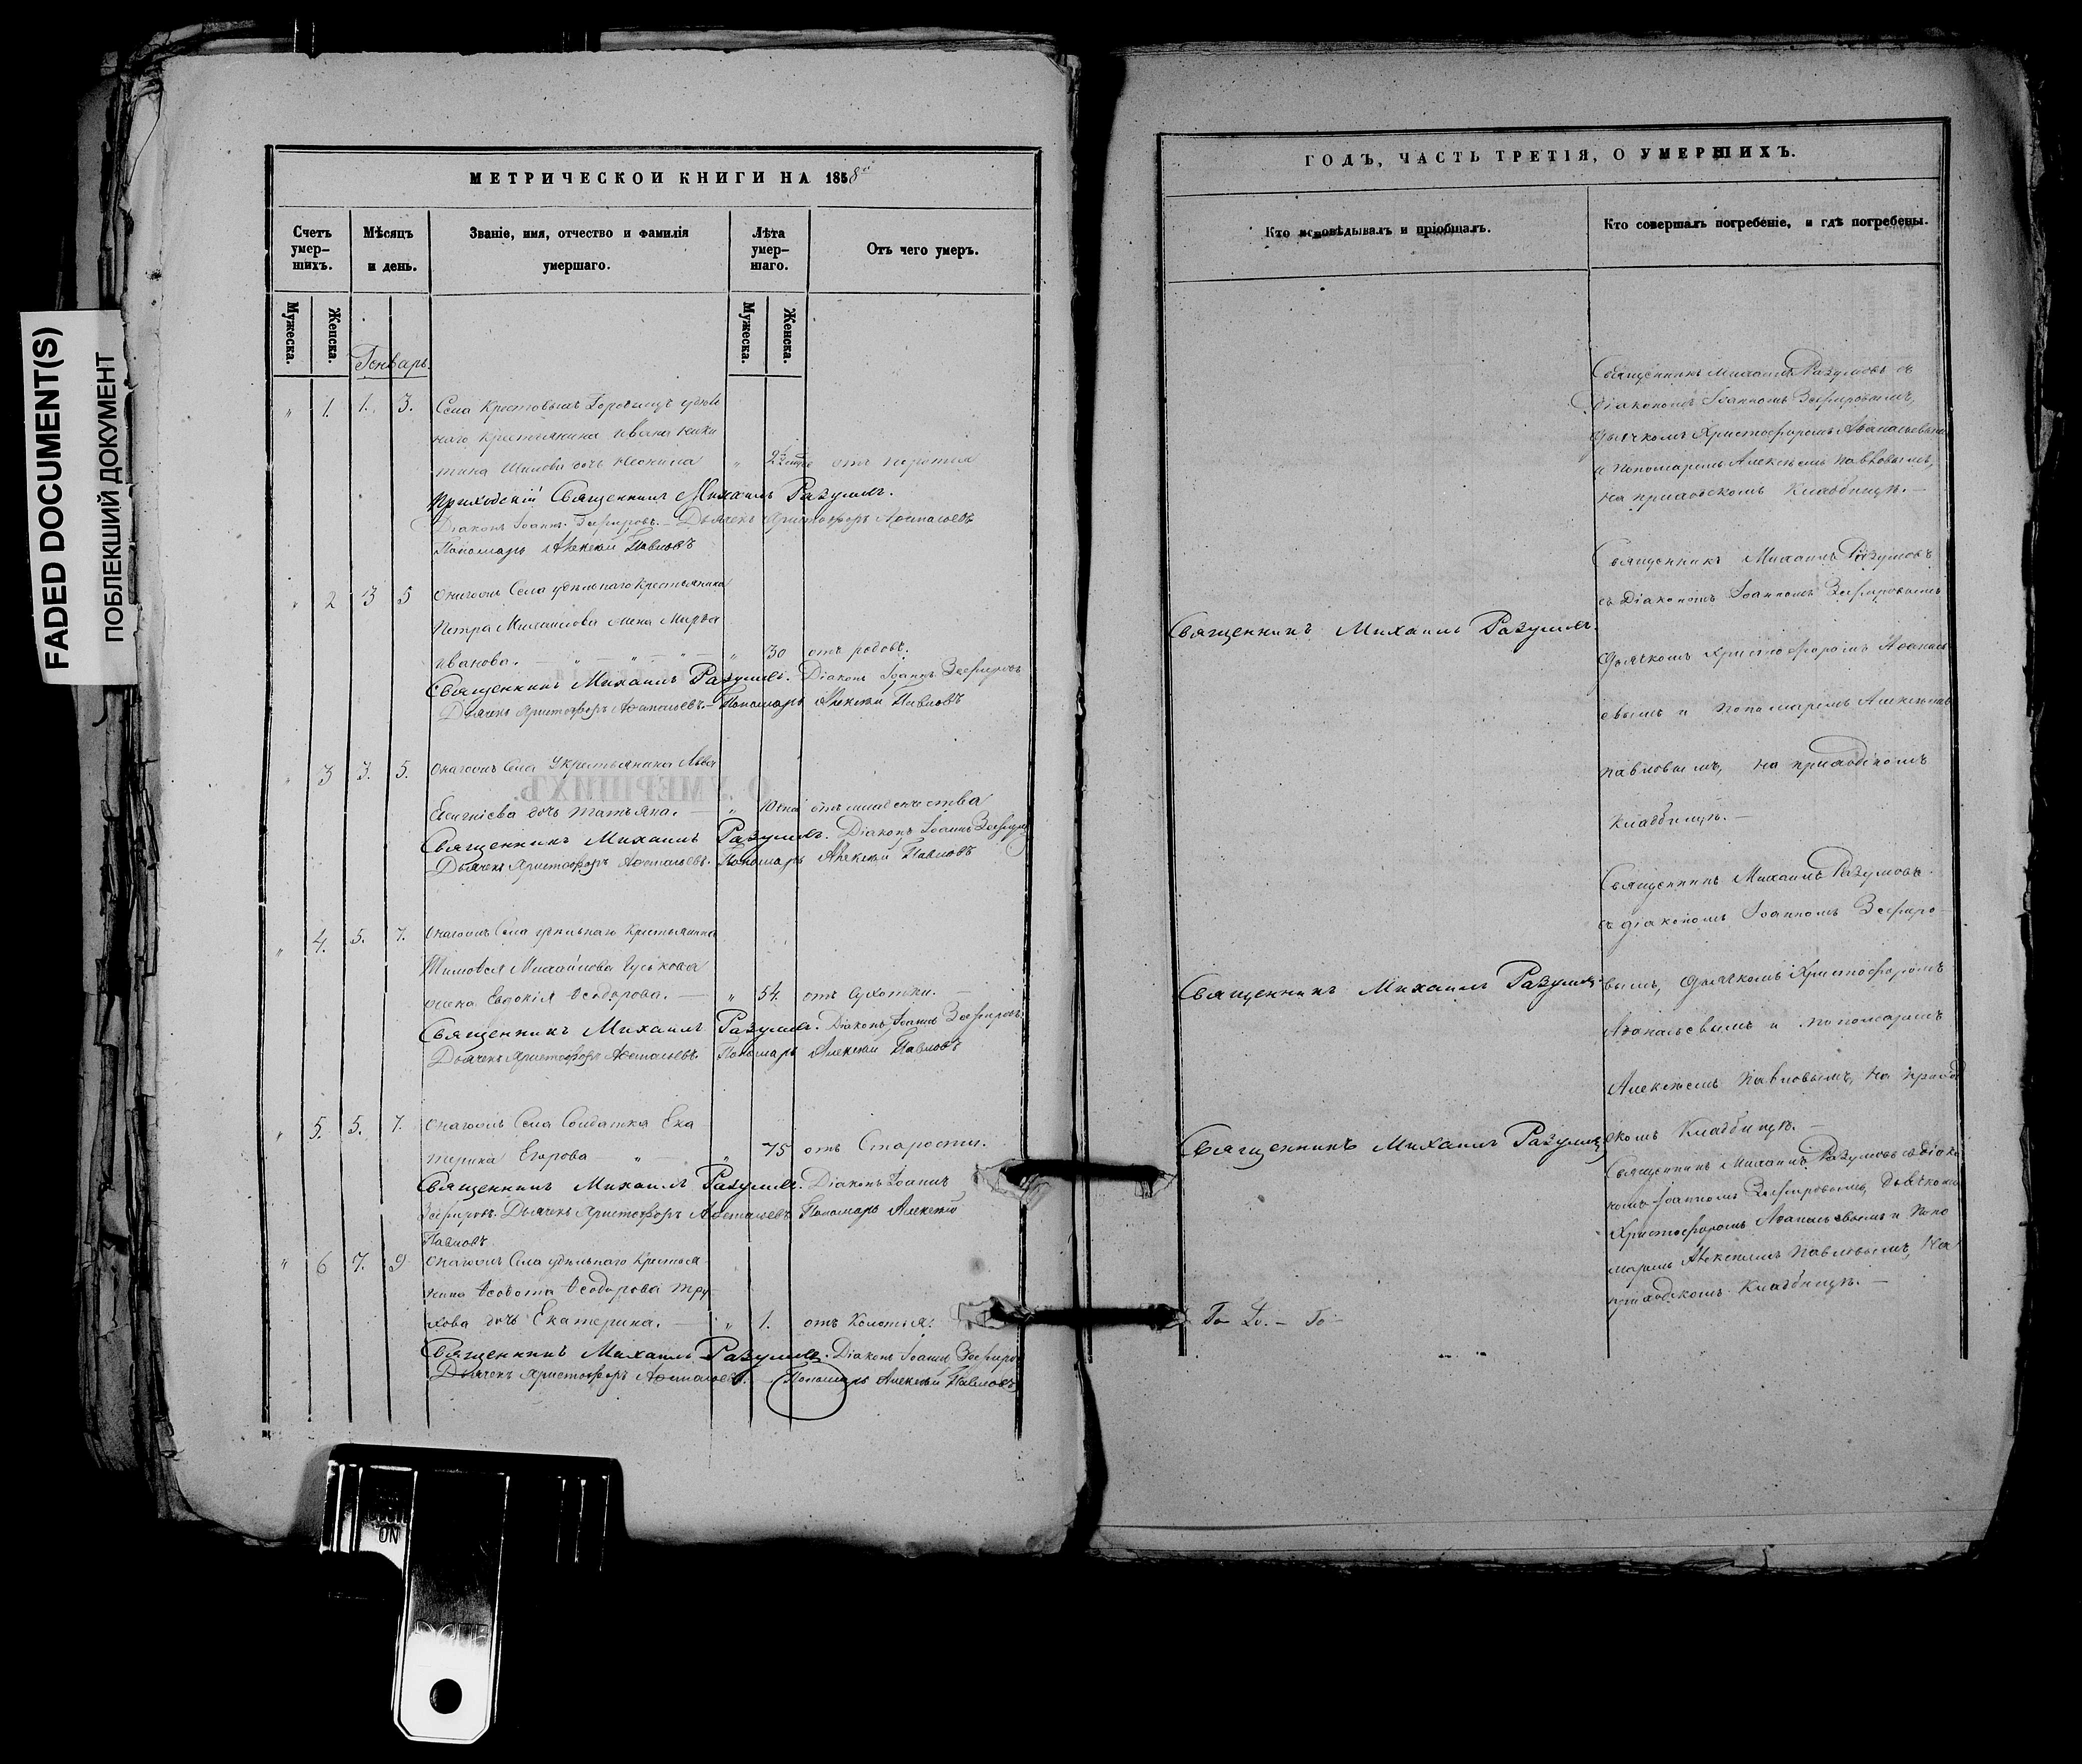 FADED DOCUMENT(S)
ПОБЛЕКШИЙ ДОКУМЕНТ
МЕТРИЧЕСКОЙ КНИГИ НА 1858
Счетъ умер-шихъ.
Мѣсяцъ и день.
Званіе, имя, отчество и фамилія умершаго.
Лѣта умер-шаго.
Отъ чего умеръ.
Мужеска.
Женска.
Мужеска.
Женска.
Генварь.
" 1. 1. 3. Села Крестовыхъ Городищъ удѣль
наго крестьянина Ивана Ники
тина дочь " отъ
Приходскій Священникъ Михаилъ Разумовъ.
Діаконъ Іоаннъ Зефировъ. – Дьячекъ Христофоръ Аѳанасьевъ
Пономарь Алексѣй Павловъ
" 2 3 5 Онагожъ Села удѣльнаго крестьянина
Петра Михайлова жена Марья
Иванова. " 30 отъ родовъ.
Священникъ Михаилъ Разумовъ. Діаконъ Іоаннъ Зефировъ
Дьячекъ Христофоръ Аѳанасьевъ. – Пономарь Алексѣй Павловъ
" 3 3. 5. Онагожъ Села У крестьянина Льва
дочь Татьяна. – " отъ младенчества
Священникъ Михаилъ Разумовъ. Діаконъ Іоаннъ Зефировъ
Дьячекъ Христофоръ Аѳанасьевъ. Пономарь Алексѣй Павловъ
" 4. 5. 7. Онагожъ Села удѣльнаго Крестьянина
Тимоѳея Михайлова Гуськова
жена Евдокія Ѳеодорова. – " 54. отъ Сухотки. –
Священникъ Михаилъ Разумовъ. Діаконъ Іоаннъ Зефировъ.
Дьячекъ Христофоръ Аѳанасьевъ. Пономарь Алексѣй Павловъ
" 5. 5. 7. Онагожъ Села Солдатка Ека
терина Егорова " – " 75 отъ Старости.
Священникъ Михаилъ Разумовъ. Діаконъ Іоаннъ
Зефировъ. Дьячекъ Христофоръ Аѳанасьевъ Пономарь Алексѣй
Павловъ
" 6 7. 9 Онагожъ Села удѣльнаго Крестья
нина Ѳеодора
хова дочь Екатерина. – " 1. отъ Колотья.
Священникъ Михаилъ Разумовъ. Діаконъ Іоаннъ Зефировъ
Дьячекъ Христофоръ Аѳанасьевъ. Пономарь Алексѣй Павловъ
ГОДЪ, ЧАСТЬ ТРЕТІЯ, О УМЕРШИХЪ.
Кто исповѣдывалъ и пріобщалъ.
Кто совершалъ погребеніе, и гдѣ погребены.
Священникъ Михаилъ Разумовъ съ
діакономъ Іоанномъ Зефировымъ,
дьячкомъ Христофоромъ Аѳанасьевымъ
и Пономаремъ Алексѣемъ Павловымъ,
на приходскомъ Кладбищѣ. –
Священникъ Михаилъ Разумовъ
съ Діакономъ Іоанномъ Зефировымъ
Священникъ Михаилъ Разумовъ.
дьячкомъ Христофоромъ Аѳанась
евымъ и Пономаремъ Алексѣемъ
Павловымъ, на приходскомъ
Кладбищѣ. –
Священникъ Михаилъ Разумовъ
съ діакономъ Іоанномъ Зефиро-
Священникъ Михаилъ Разумовъ
вымъ, дьячкомъ Христофоромъ
Аѳанасьевымъ и пономаремъ
Алексѣемъ Павловымъ, на приход
Священникъ Михаилъ Разумовъ
скомъ Кладбищѣ. –
Священникъ Михаилъ Разумовъ съ діако
номъ Іоанномъ Зефировымъ, дьячкомъ
Христофоромъ Аѳанасьевымъ и Поно
маремъ Алексѣемъ Павловымъ, на
приходскомъ Кладбищѣ. –